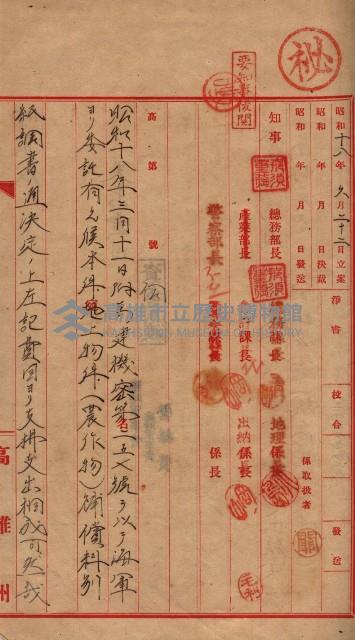 祕
昭和十八年 月二十二日立案
昭和 年 月 日決裁
昭和 年 月 日發送
淨書
校合
發送
係取扱者
知事
總務部長
地理係長
產業部長
計課長
出納係長
警察部長
係長
要知事檢閱
高 第 號
高雄市立歷史博物館
昭和十八年三月十一日附
建機密第一五七號ヲ以テ海軍
ヨリ委託有之候本件地上物件(農作物)補償料別
紙調書ノ通決定ノ上左記費目ヨリ支拂支出相成可然哉
高雄州